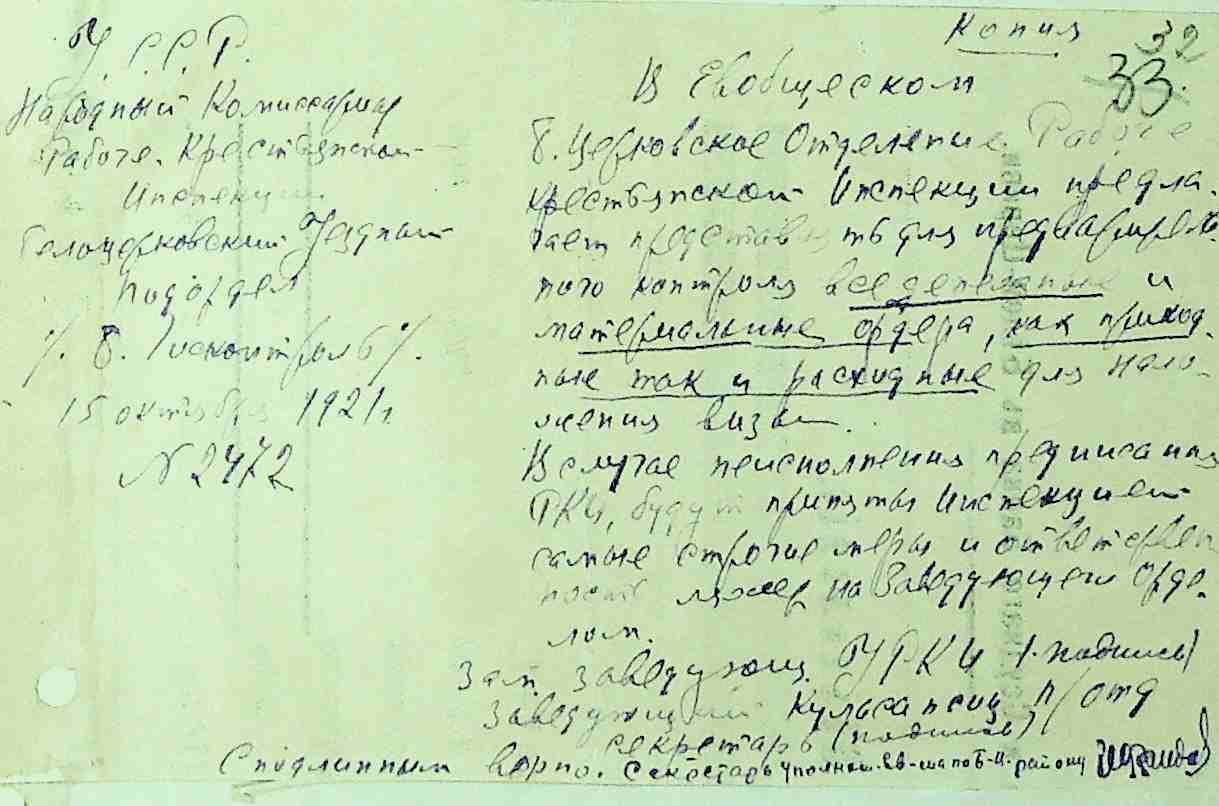 Копия
32
33.
У. С. С. Р.
Народный Комиссариат
Рабоче-Крестьянской
Инспекции
Белоцерковский Уездный
подотдел
15 октября 1921 г.
№ 2472
В Евобщеском
Б. Церковское Отделение Рабоче
крестьянской Инспекции предла-
гает представлять для предваритель
ного контроля все денежные и
материальные ордера, как приход
ные так и расходные для нало-
жения визы.
В случае неисполнения предписания
РКИ, будут приняты Инспекцией
самые строгие меры и ответствен
ность ляжет на Заведующего отде-
лом.
Зам. Заведующ. УРКИ (подпись)
Заведующий п/отд
Секретарь (подпись)
С подлинным верно. Секретарь уполном. по Б-Ц. району